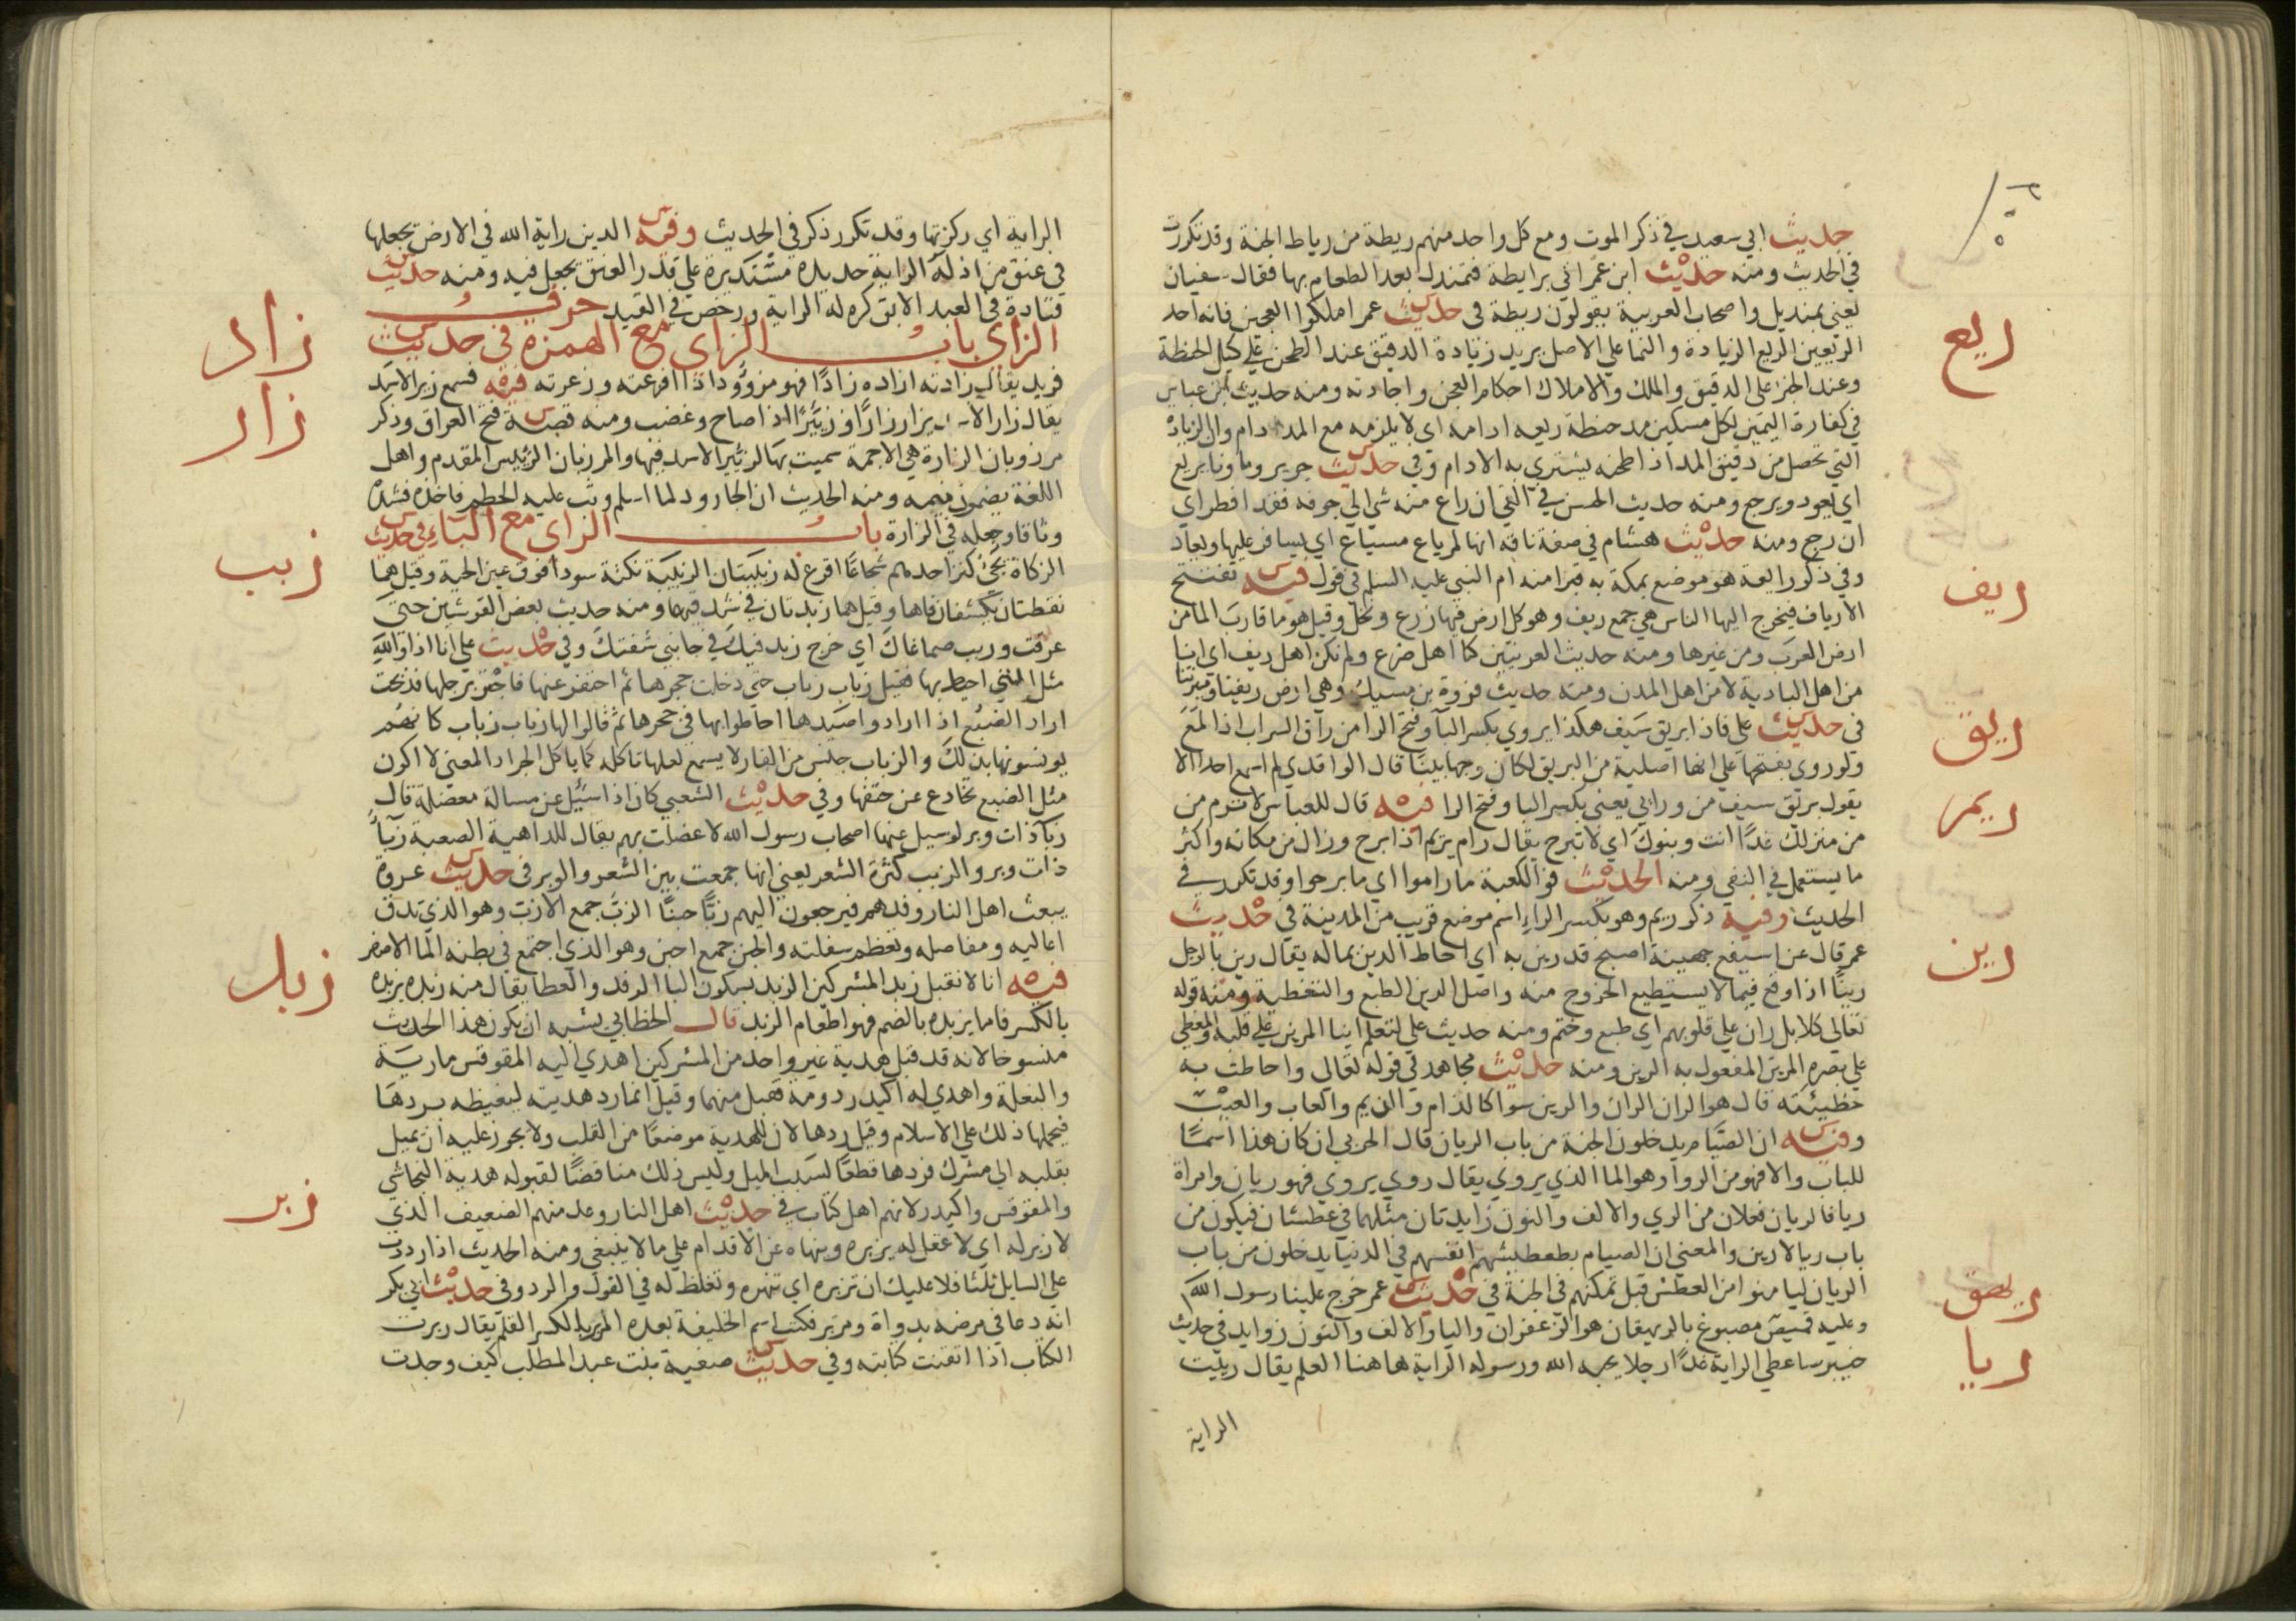 حديث ابي سعيد في ذكر الموت ومع كل واحد منهم ريطة من رياط الجنة وقد تكررت
في الحديث ومنه حديث ابن عمر اتي برايطة فتمندل بعد الطعام بها فقال سفيان
ريع
يعني بمنديل واصحاب العربية يقولون ريطة في حديث عمر املكوا العجين فانه احد
الريعين الريع الزيادة والنما علي الاصل يريد زيادة الدقيق عند الطحن علي كيل الحنطة
وعند الخبز علي الدقيق والملك والاملاك احكام العجن واجادته ومنه حديث ابن عباس
في كفارة اليمين لكل مسكين مد حنطة ريعه ادامه اي لا يلزمه مع المد ادام وان الزيادة
التي تحصل من دقيق المد اذا طحنه يشتري به الادام وفي حديث جرير وماونا يريع
اي يعود ويرجع ومنه حديث الحسن في القي ان راع منه شي الي جوفه فقد افطر اي
ان رجع ومنه حديث هشام في صفة ناقة انها لمرياع مسياع اي يسافر عليها ويعاد
ريف
وفي ذكر رايعة هو موضع بمكة به قبر امنه ام النبي عليه السلم في قول فيه تفتتح
الارياف فيخرج اليها الناس هي جمع ريف وهو كل ارض فيها زرع ونخل وقيل هو ما قارب الما من
ارض العرب ومن غيرها ومنه حديث العرنيين كنا اهل ضرع ولم نكن اهل ريف اي اننا
من اهل البادية لا من اهل المدن ومنه حديث فروة بن مسيك وهي ارض ريفنا وميرتنا
ريق
في حديث علي فاذا بريق سيف هكذا يروي بكسر البا وفتح الرا من راق السراب اذا لمع
ولو روي بفتحها علي انها اصلية من البريق لكان وجها بينا قال الواقدي لم اسمع احدا الا
ريم
يقول بريق سيف من ورايي يعني بكسر البا وفتح الرا فيه قال للعباس لا ترم من
من منزلك غدا انت وبنوك اي لا تبرح يقال رام يريم اذا برح وزال من مكانه واكثر
ما يستعمل في النفي ومنه الحديث فو الكعبة ما راموا اي ما برحوا وقد تكرر في
الحديث وفيه ذكر ريم وهو بكسر الراء اسم موضع قريب من المدينة في حديث
رين
عمر قال عن اسيفع جهينة اصبح قد رين به اي احاط الدين بماله يقال رين بالرجل
رينا اذا وقع فيما لا يستطيع الخروج منه واصل الرين الطبع والتغطية ومنه قوله
تعالي كلا بل ران علي قلوبهم اي طبع وختم ومنه حديث علي لتعلم اينا المرين علي قلبه والمغطي
علي بصره المرين المفعول به الرين ومنه حديث مجاهد في قوله تعالي واحاطت به
خطيئته قال هو الران الران والرين سوا كالذام والذيم والعاب والعيب
وفيه ان الصيام يدخلون الجنة من باب الريان قال الحربي ان كان هذا اسما
للباب والا فهو من الرواء وهو الما الذي يروي يقال روي يروي فهو ريان وامراة
ريا فالريان فعلان من الري والالف والنون زايدتان مثلهما في عطشان فيكون من
باب ريا لا رين والمعني ان الصيام بتعطيشهم انفسهم في الدنيا يدخلون من باب
ريهق
الريان ليامنوا من العطش قبل تمكنهم في الجنة في حديث عمر خرج علينا رسول الله
وعليه قميص مصبوغ بالريهقان هو الزعفران واليا والالف والنون زوايد في حديث
ريا
خيبر ساعطي الراية غدا رجلا يحبه الله ورسوله الراية هاهنا العلم يقال رييت
الراية
الراية اي ركزتها وقد تكرر ذكر في الحديث وفيه الدين راية الله في الارض يجعلها
في عنق من اذله الراية حديدة مستديرة علي قدر العنق تجعل فيه ومنه حديث
قتادة في العبد الابق كره له الراية ورخص في القيد حرف
زاد
الزاي باب الزاي مع الهمزة في حديث
فزيد يقال زادته ازاده زادا فهو مزؤود اذا افزعته وزعرته فيه فسمع زير الاسد
زار
يقال زار الاسد يزار زارا وزئيرا اذا صاح وغضب ومنه قصة فتح العراق وذكر
مرزوبان الزارة هي الاجمة سميت بها لزئير الاسد فيها والمرزبان الرئيس المقدم واهل
اللغة يضمون ميمه ومنه الحديث ان الجارود لما اسلم وثب عليه الحطم فاخذه فشده
وثاقا وجعله في الزارة باب الزاي مع الباء في حديث
زبب
الزكاة يجئ كنز احدهم شجاعا اقرع له زبيبتان الزبيبة نكتة سودا فوق عين الحية وقيل هما
نقطتان تكتنفان فاها وقيل هما زبدتان في شدقيها ومنه حديث بعض القرشيين حتي
عرقت وزبب صماغاك اي خرج زبد فيك في جانبي شفتك وفي حديث علي انا اذا والله
مثل التي احيط بها فقيل زباب زباب حتي دخلت جحرها ثم احتفر عنها فاجتر برجلها فذبحت
اراد الضبع اذا ارادوا صيدها احاطوا بها في جحرها ثم قالوا لها زباب زباب كانهم
يونسونها بذلك والزباب جنس من الفار لا يسمع لعلها تاكله كما ياكل الجراد المعني لا اكون
مثل الضبع تخادع عن حتفها وفي حديث الشعبي كان اذا سئل عن مسالة معضلة قال
زبا ذات وبر لو سيل عنها اصحاب رسول الله لاعضلت بهم يقال للداهية الصعبة زبا
ذات وبر والزبب كثرة الشعر يعني انها جمعت بين الشعر والوبر في حديث عروة
يبعث اهل النار وفدهم فيرجعون اليهم زبا حبنا الزب جمع الازب وهو الذي تدق
اعاليه ومفاصله وتعظم سفلته والحبن جمع احبن وهو الذي اجتمع في بطنه الما الاصفر
زبد
فيه انا لا نقبل زبد المشركين الزبد بسكون البا الرفد والعطا يقال منه زبده يزبده
بالكسر فاما يزبده بالضم فهو اطعام الزبد قال الخطابي يشبه ان يكون هذا الحديث
منسوخا لانه قد قبل هدية غير واحد من المشركين اهدي اليه المقوقس مارية
والبغلة واهدي له اكيدر دومة فقبل منهما وقيل انما رد هديته ليغيظه بردها
فيحملها ذلك علي الاسلام وقيل ردها لان للهدية موضعا من القلب ولا يجوز عليه ان يميل
بقلبه الي مشرك فردها قطعا لسبب الميل وليس ذلك مناقضا لقبوله هدية النجاشي
زبر
والمقوقس واكيدر لانهم اهل كتاب في حديث اهل النار وعد منهم الضعيف الذي
لا زبر له اي لا عقل له يزبره وينهاه عن الاقدام علي ما لا ينبغي ومنه الحديث اذا رددت
علي السايل ثلثا فلا عليك ان تزبره اي تنهره وتغلظ له في القول والرد وفي حديث ابي بكر
انه دعا في مرضه بدواة ومزبر فكتب اسم الخليفة بعده المزبر بالكسر القلم يقال زبرت
الكتاب اذا اتقنت كتابته وفي حديث صفية بنت عبد المطلب كيف وجدت